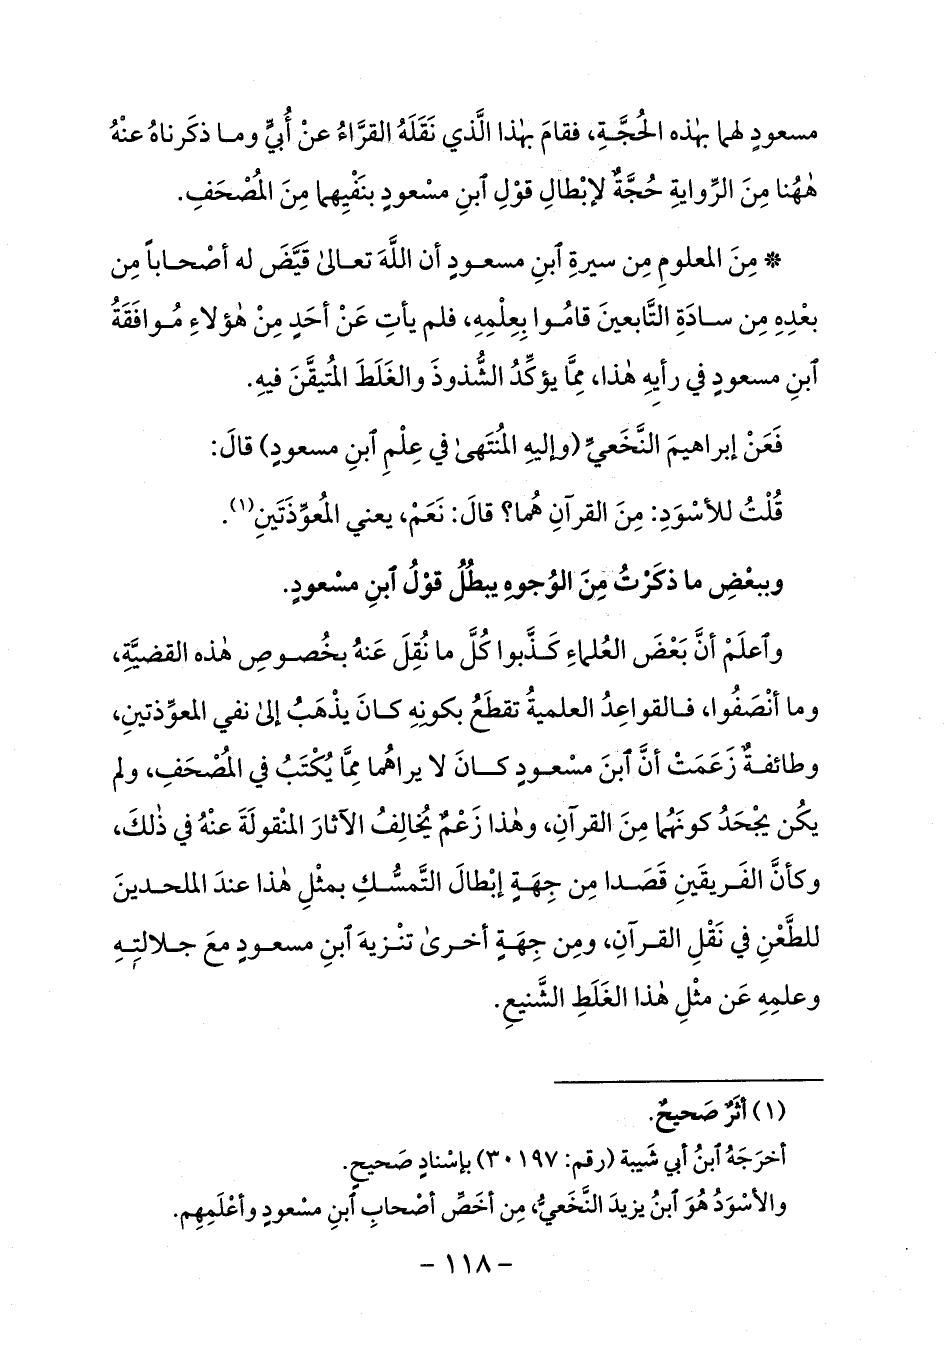 مسعودٍ لهما بهٰذه الحُجَّةِ، فقامَ بهٰذا الَّذي نَقَلَهُ القرَّاءُ عنْ أُبيٍّ وما ذكَرناهُ عنْهُ
هٰهُنا مِنَ الرِّوايةِ حُجَّةٌ لإبْطالِ قوْلِ ٱبنِ مسْعودٍ بنَفْيِهِما مِنَ المُصْحَفِ.
* مِنَ المعلومِ مِن سيرةِ ٱبنِ مسعودٍ أن اللَّهَ تعالىٰ قَيَّضَ له أصْحاباً مِن
بعْدِهِ مِن سادَةِ التَّابعينَ قامُوا بِعِلْمِهِ، فلم يأتِ عَنْ أحَدٍ مِنْ هٰؤلاءِ مُوافَقَةُ
ٱبنِ مسعودٍ في رأيِهِ هٰذا، مِمَّا يؤكِّدُ الشُّذوذَ والغَلَطَ المُتيقَّنَ فيهِ.
فَعَنْ إبراهيمَ النَّخَعيِّ (وإليهِ المُنتَهىٰ في عِلْمِ ٱبنِ مسعودٍ) قالَ:
قُلْتُ للأسْوَدِ: مِنَ القرآنِ هُما؟ قالَ: نَعَمْ، يعني المُعوِّذَتَينِ(١).
وببعْضِ ما ذكَرْتُ مِنَ الوُجوهِ يبطُلُ قوْلُ ٱبنِ مسْعودٍ.
وٱعلَمْ أنَّ بَعْضَ العُلماءِ كَذَّبوا كُلَّ ما نُقِلَ عَنهُ بخُصوصِ هٰذه القضيَّةِ،
وما أنْصَفُوا، فالقواعِدُ العلميةُ تقطَعُ بكونِهِ كانَ يذْهَبُ إلىٰ نفي المعوِّذتينِ،
وطائفةٌ زَعَمَتْ أنَّ ٱبنَ مسْعودٍ كانَ لا يراهُما مِمَّا يُكْتَبُ في المُصْحَفِ، ولم
يكُن يجْحَدُ كونَهُما مِنَ القرآنِ، وهٰذا زَعْمٌ يُخالِفُ الآثارَ المنْقولَةَ عنْهُ في ذٰلكَ،
وكأنَّ الفَريقَينِ قَصَدا مِن جِهَةٍ إبْطالَ التَّمسُّكِ بمثْلِ هٰذا عندَ الملحدينَ
للطَّعْنِ في نَقْلِ القرآنِ، ومِن جِهَةٍ أخرىٰ تنْزيهَ ٱبنِ مسعودٍ معَ جلالتِهِ
وعلمِهِ عَن مثْلِ هٰذا الغَلَطِ الشَّنيعِ.
(١) أثَرٌ صَحيحٌ.
أخرَجَهُ ٱبنُ أبي شَيبة (رقم: ٣٠١٩٧) بإسْنادٍ صَحيحٍ.
والأسْوَدُ هُوَ ٱبنُ يزيدَ النَّخَعيُّ، مِن أخَصِّ أصْحابِ ٱبنِ مسْعودٍ وأعْلَمِهِم.
- ١١٨ -